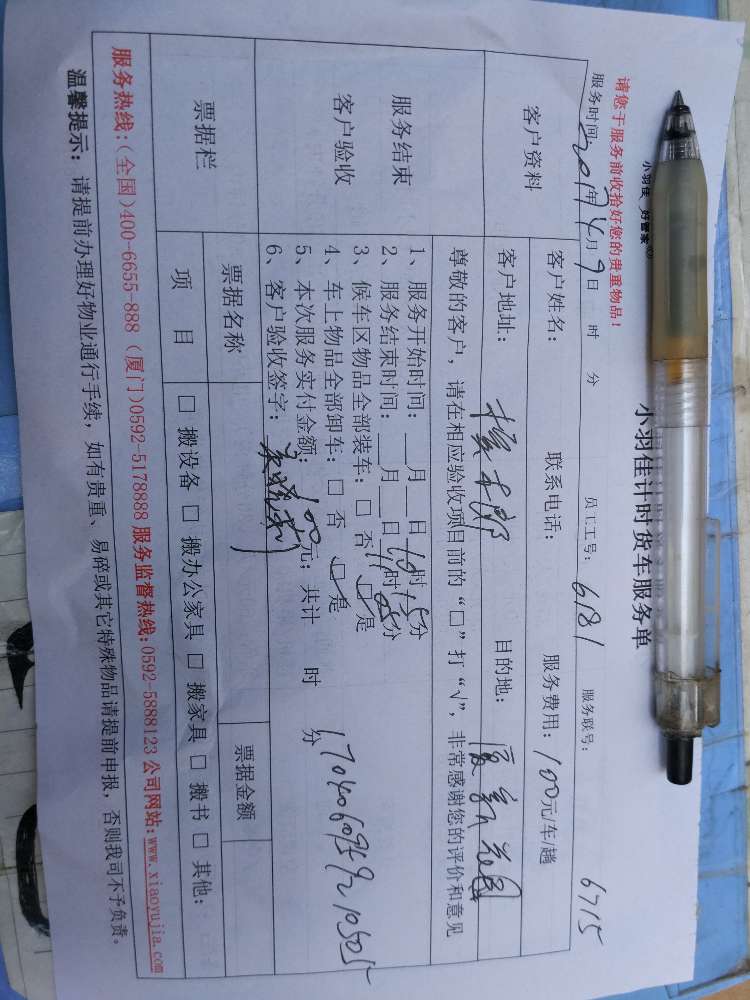 小羽佳 好管家
小羽佳计时货车服务单
请您于服务前收拾好您的贵重物品！
服务时间：2017年4月9日 时 分 员工工号：6181 服务联号：6715
客户资料
客户姓名： 联系电话： 服务费用：100元/车/趟
客户地址： 目的地：
尊敬的客户，请在相应验收项目前的“□”打“√”，非常感谢您的评价和意见
服务结束
客户验收
1、服务开始时间：__月__日10时15分
2、服务结束时间：__月__日11时05分
3、候车区物品全部装车：□ 否 ☑ 是
4、车上物品全部卸车：□ 否 ☑ 是
5、本次服务实付金额：100元；共计 时 分
6、客户验收签字：
票据栏
票据名称 票据金额
项 目 □ 搬设备 □ 搬办公家具 □ 搬家具 □ 搬书 □ 其他：
服务热线：(全国)400-6655-888 (厦门)0592-5178888 服务监督热线：0592-5888123 公司网站：www.xiaoyujia.com
温馨提示：请提前办理好物业通行手续，如有贵重、易碎或其它特殊物品请提前申报，否则我司不予负责。